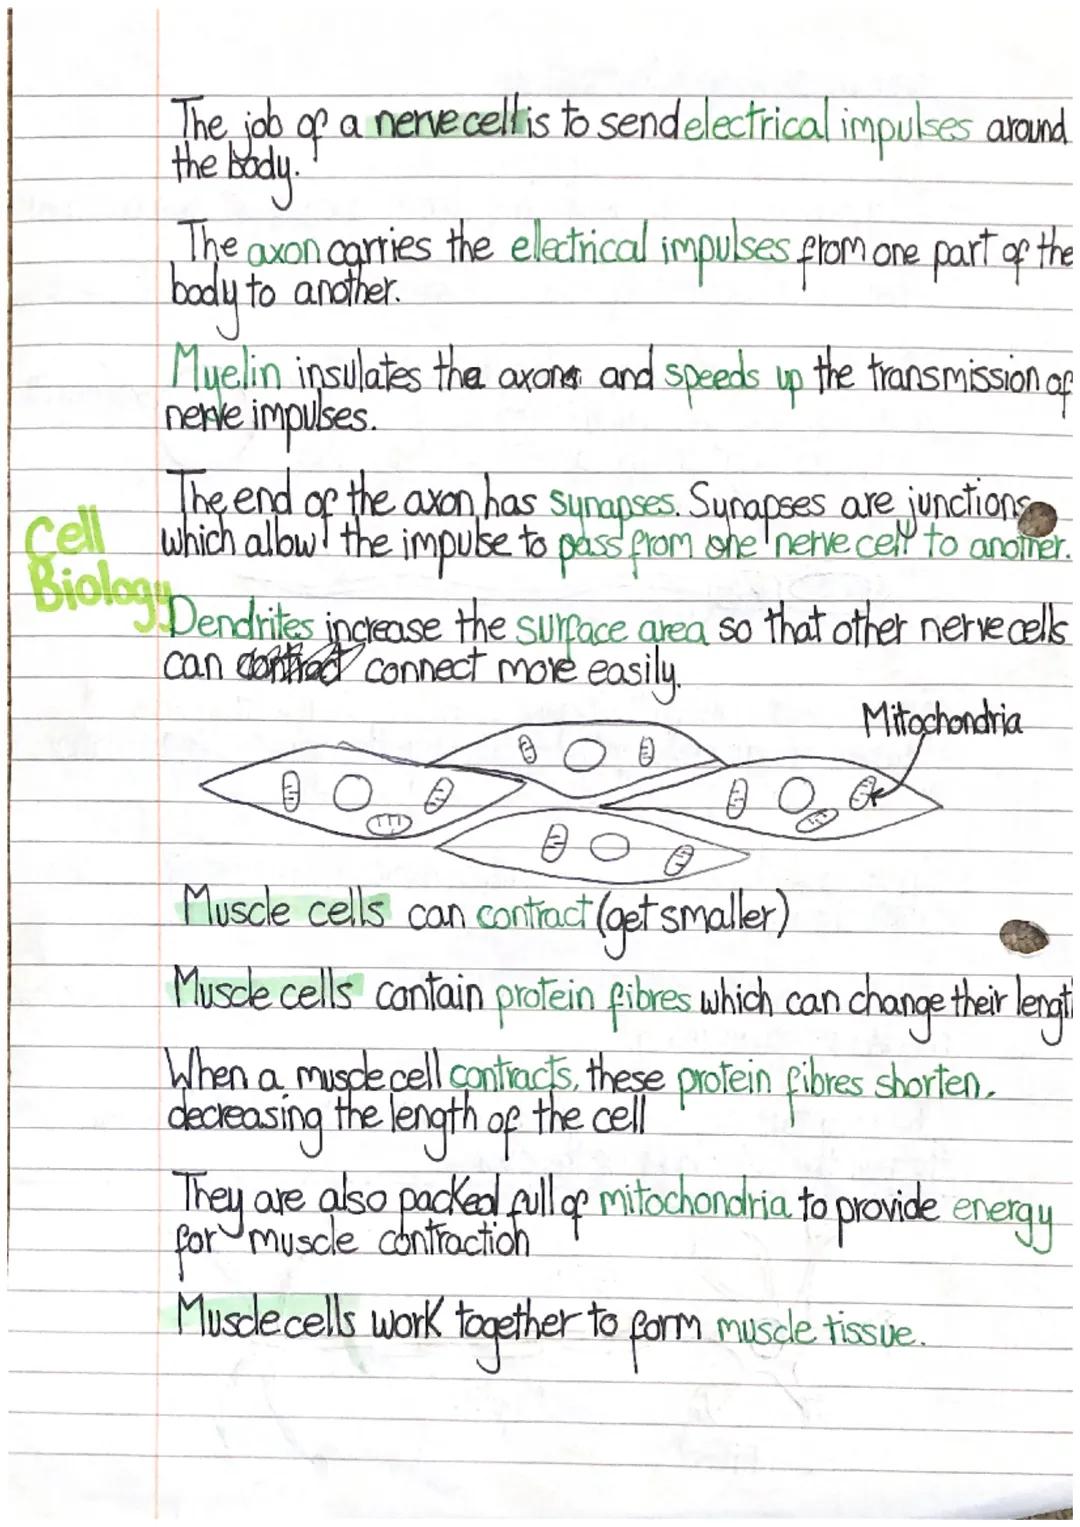 The job of a nerve cell is to send electrical impulses around
the body.
The axon carries the electrical impulses from one part of the
body to another.
Myelin insulates the axon and speeds up the transmission of
nerve impulses.
The end of the axon has synapses. Synapses are junctions
which allow the impulse to pass from one nerve cell to another.
Cell
Biology
Dendrites increase the surface area so that other nerve cells
can contract connect more easily.
Mitochondria
Muscle cells can contract (get smaller)
Muscle cells contain protein fibres which can change their lengt
When a muscle cell contracts, these protein fibres shorten,
decreasing the length of the cell
They are also packed full of mitochondria to provide energy
for muscle contraction
Muscle cells work together to form muscle tissue.